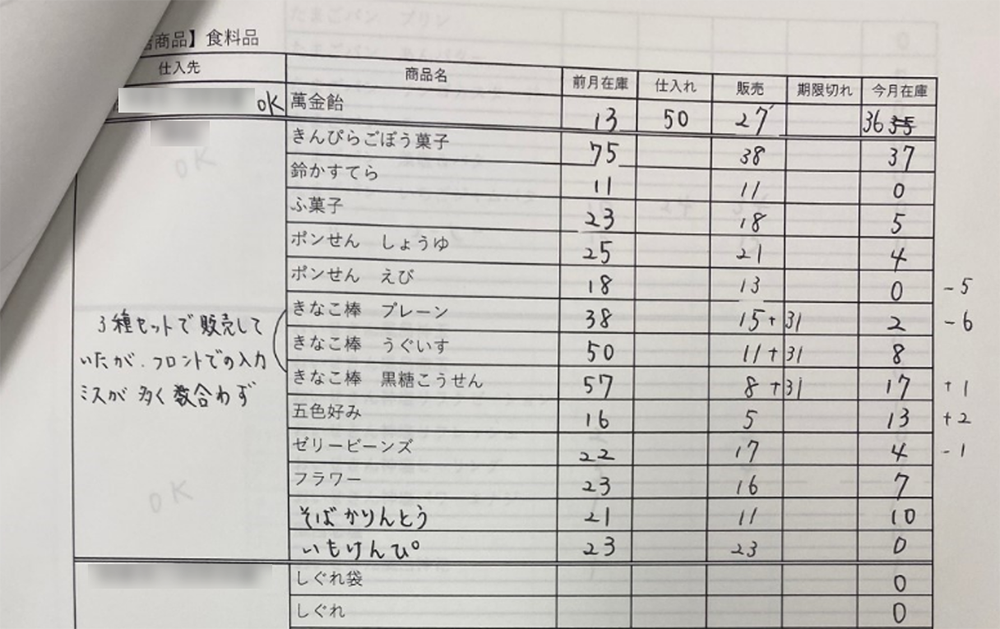 商品】食料品
仕入先 商品名 前月在庫 仕入れ 販売 期限切れ 今月在庫
OK 萬金飴 13 50 27 36 35
きんぴらごぼう菓子 75 38 37
OK
鈴かすてら 11 11 0
ふ菓子 23 18 5
ポンせん しょうゆ 25 21 4
ポンせん えび 18 13 0 -5
きなこ棒 プレーン 38 15+31 2 -6
3種セットで販売して
きなこ棒 うぐいす 50 11+31 8
いたが、フロントでの入力
きなこ棒 黒糖こうせん 57 8+31 17 +1
ミスが多く数合わず
五色好み 16 5 13 +2
ゼリービーンズ 22 17 4 -1
フラワー 23 16 7
OK
そばかりんとう 21 11 10
いもけんぴ 23 23 0
しぐれ袋 0
しぐれ 0